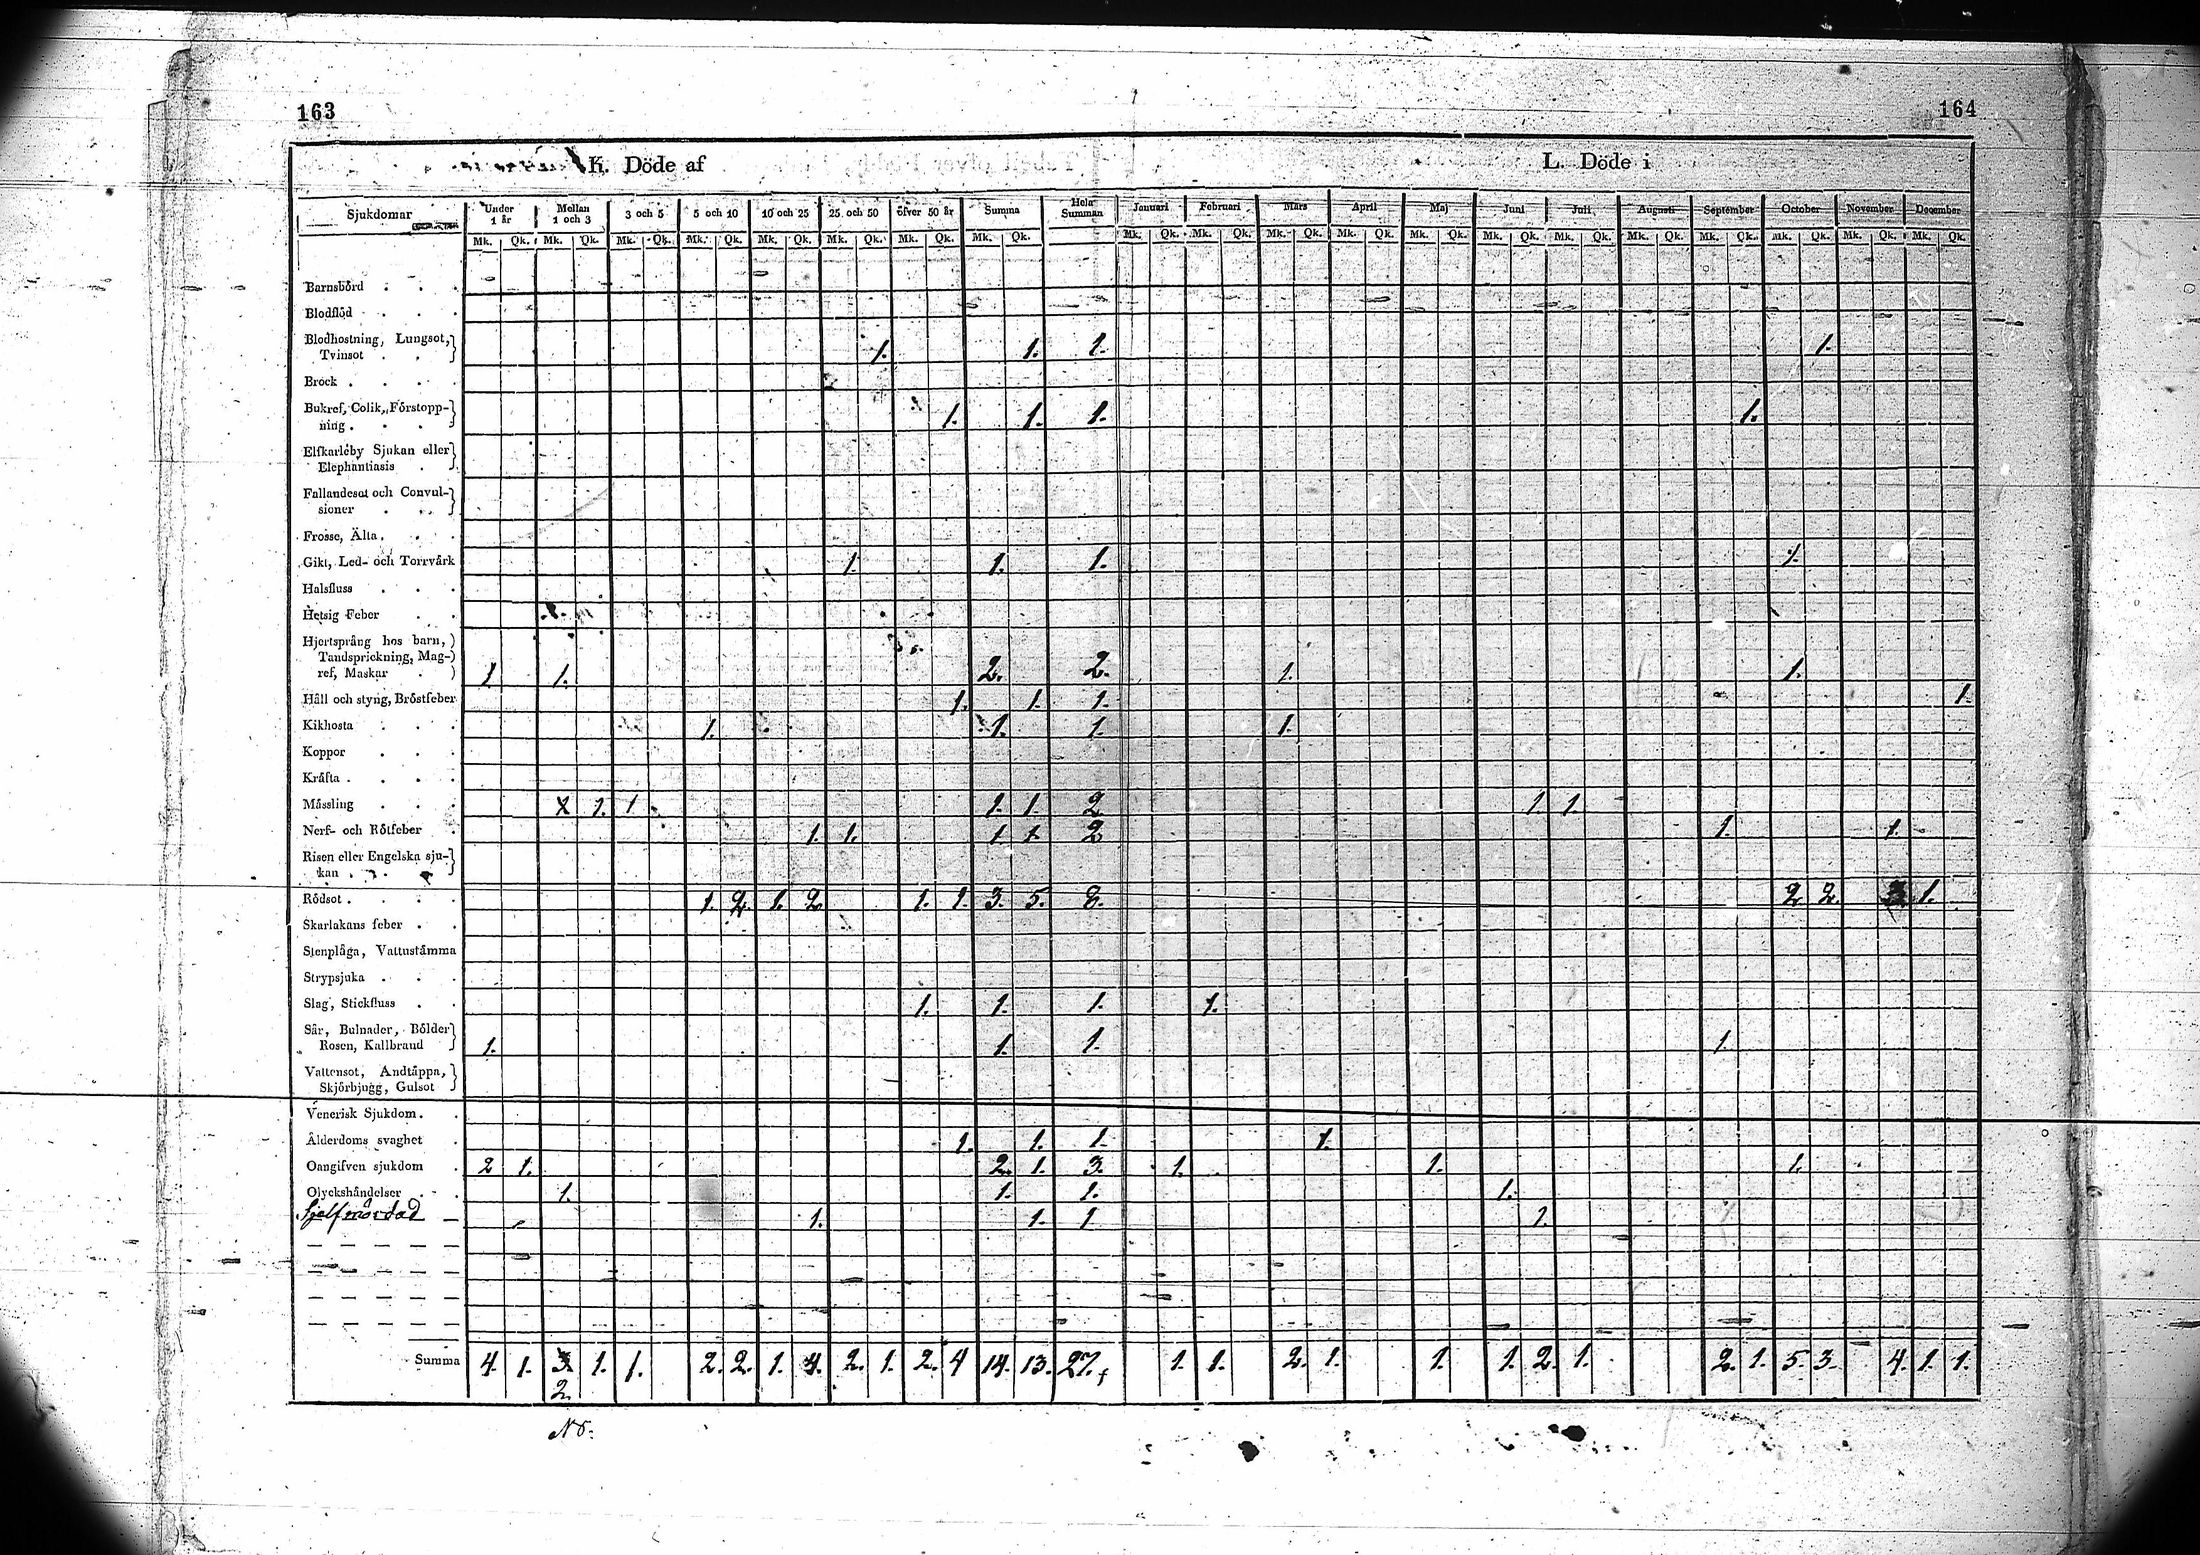 163
164
K. Döde af
L. Döde i
Sjukdomar Under 1 år Mellan 1 och 3 3 och 5 5 och 10 10 och 25 25 och 50 öfver 50 år Summa Hela Summan Januari Februari Mars April Maj Juni Juli Augusti September October November December
Mk. Qk. Mk. Qk. Mk. Qk. Mk. Qk. Mk. Qk. Mk. Qk. Mk. Qk. Mk. Qk. Mk. Qk. Mk. Qk. Mk. Qk. Mk. Qk. Mk. Qk. Mk. Qk. Mk. Qk. Mk. Qk. Mk. Qk. Mk. Qk. Mk. Qk. Mk. Qk.
Barnsbörd . . .
Blodflöd . . .
Blodhostning, Lungsot,
Tvinsot . . 1. 1. 1. 1.
Bråck . . . .
Bukref, Colik, Förstopp-
ning . . . 1. 1. 1. 1.
Elfkarleby Sjukan eller
Elephantiasis .
Fallandesot och Convul-
sioner . .
Frossa, Älta . . .
Gikt, Led- och Torrvärk 1. 1. 1. 1.
Halsfluss . . .
Hetsig Feber . .
Hjertsprång hos barn,
Tandsprickning, Mag-
ref, Maskar . 1 1. 2. 2. 1. 1.
Håll och styng, Bröstfeber 1. 1. 1. 1.
Kikhosta . . . 1. 1. 1. 1.
Koppor . . .
Kräfta . . . .
Mässling . . . 1. 1 1. 1. 2 1 1.
Nerf- och Rötfeber . 1. 1. 1 1. 2 1. 1.
Risen eller Engelska sju-
kan . . .
Rödsot . . . . 1. 2. 1. 2 1. 1. 3. 5. 8. 2 2. 1.
Skarlakans feber . .
Stenplåga, Vattustämma
Strypsjuka . . .
Slag, Stickfluss . . 1. 1. 1. 1.
Sår, Bulnader, Bölder
Rosen, Kallbrand 1. 1. 1. 1.
Vattensot, Andtäppa,
Skjörbjugg, Gulsot
Venerisk Sjukdom . .
Ålderdoms svaghet . 1. 1. 1. 1.
Oangifven sjukdom . 2 1. 2. 1. 3. 1. 1. 1.
Olyckshändelser . . 1. 1. 1. 1.
Sjelfmördad 1. 1. 1 1.
Summa 4. 1. 3. 1. 1. 2. 2. 1. 4. 2. 1. 2. 4 14. 13. 27. 1. 1. 2. 1. 1. 1. 2. 1. 2. 1. 5. 3. 4. 1. 1.
2.